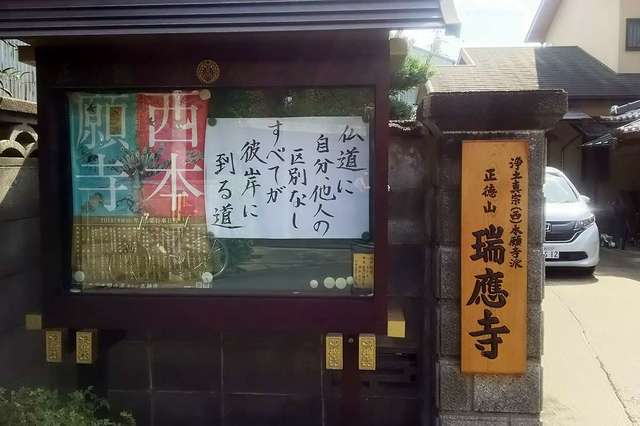 西本
願寺
仏道に
自分・他人の
区別なし
すべてが
彼岸に
到る道
浄土真宗(西)本願寺派
正徳山
瑞應寺